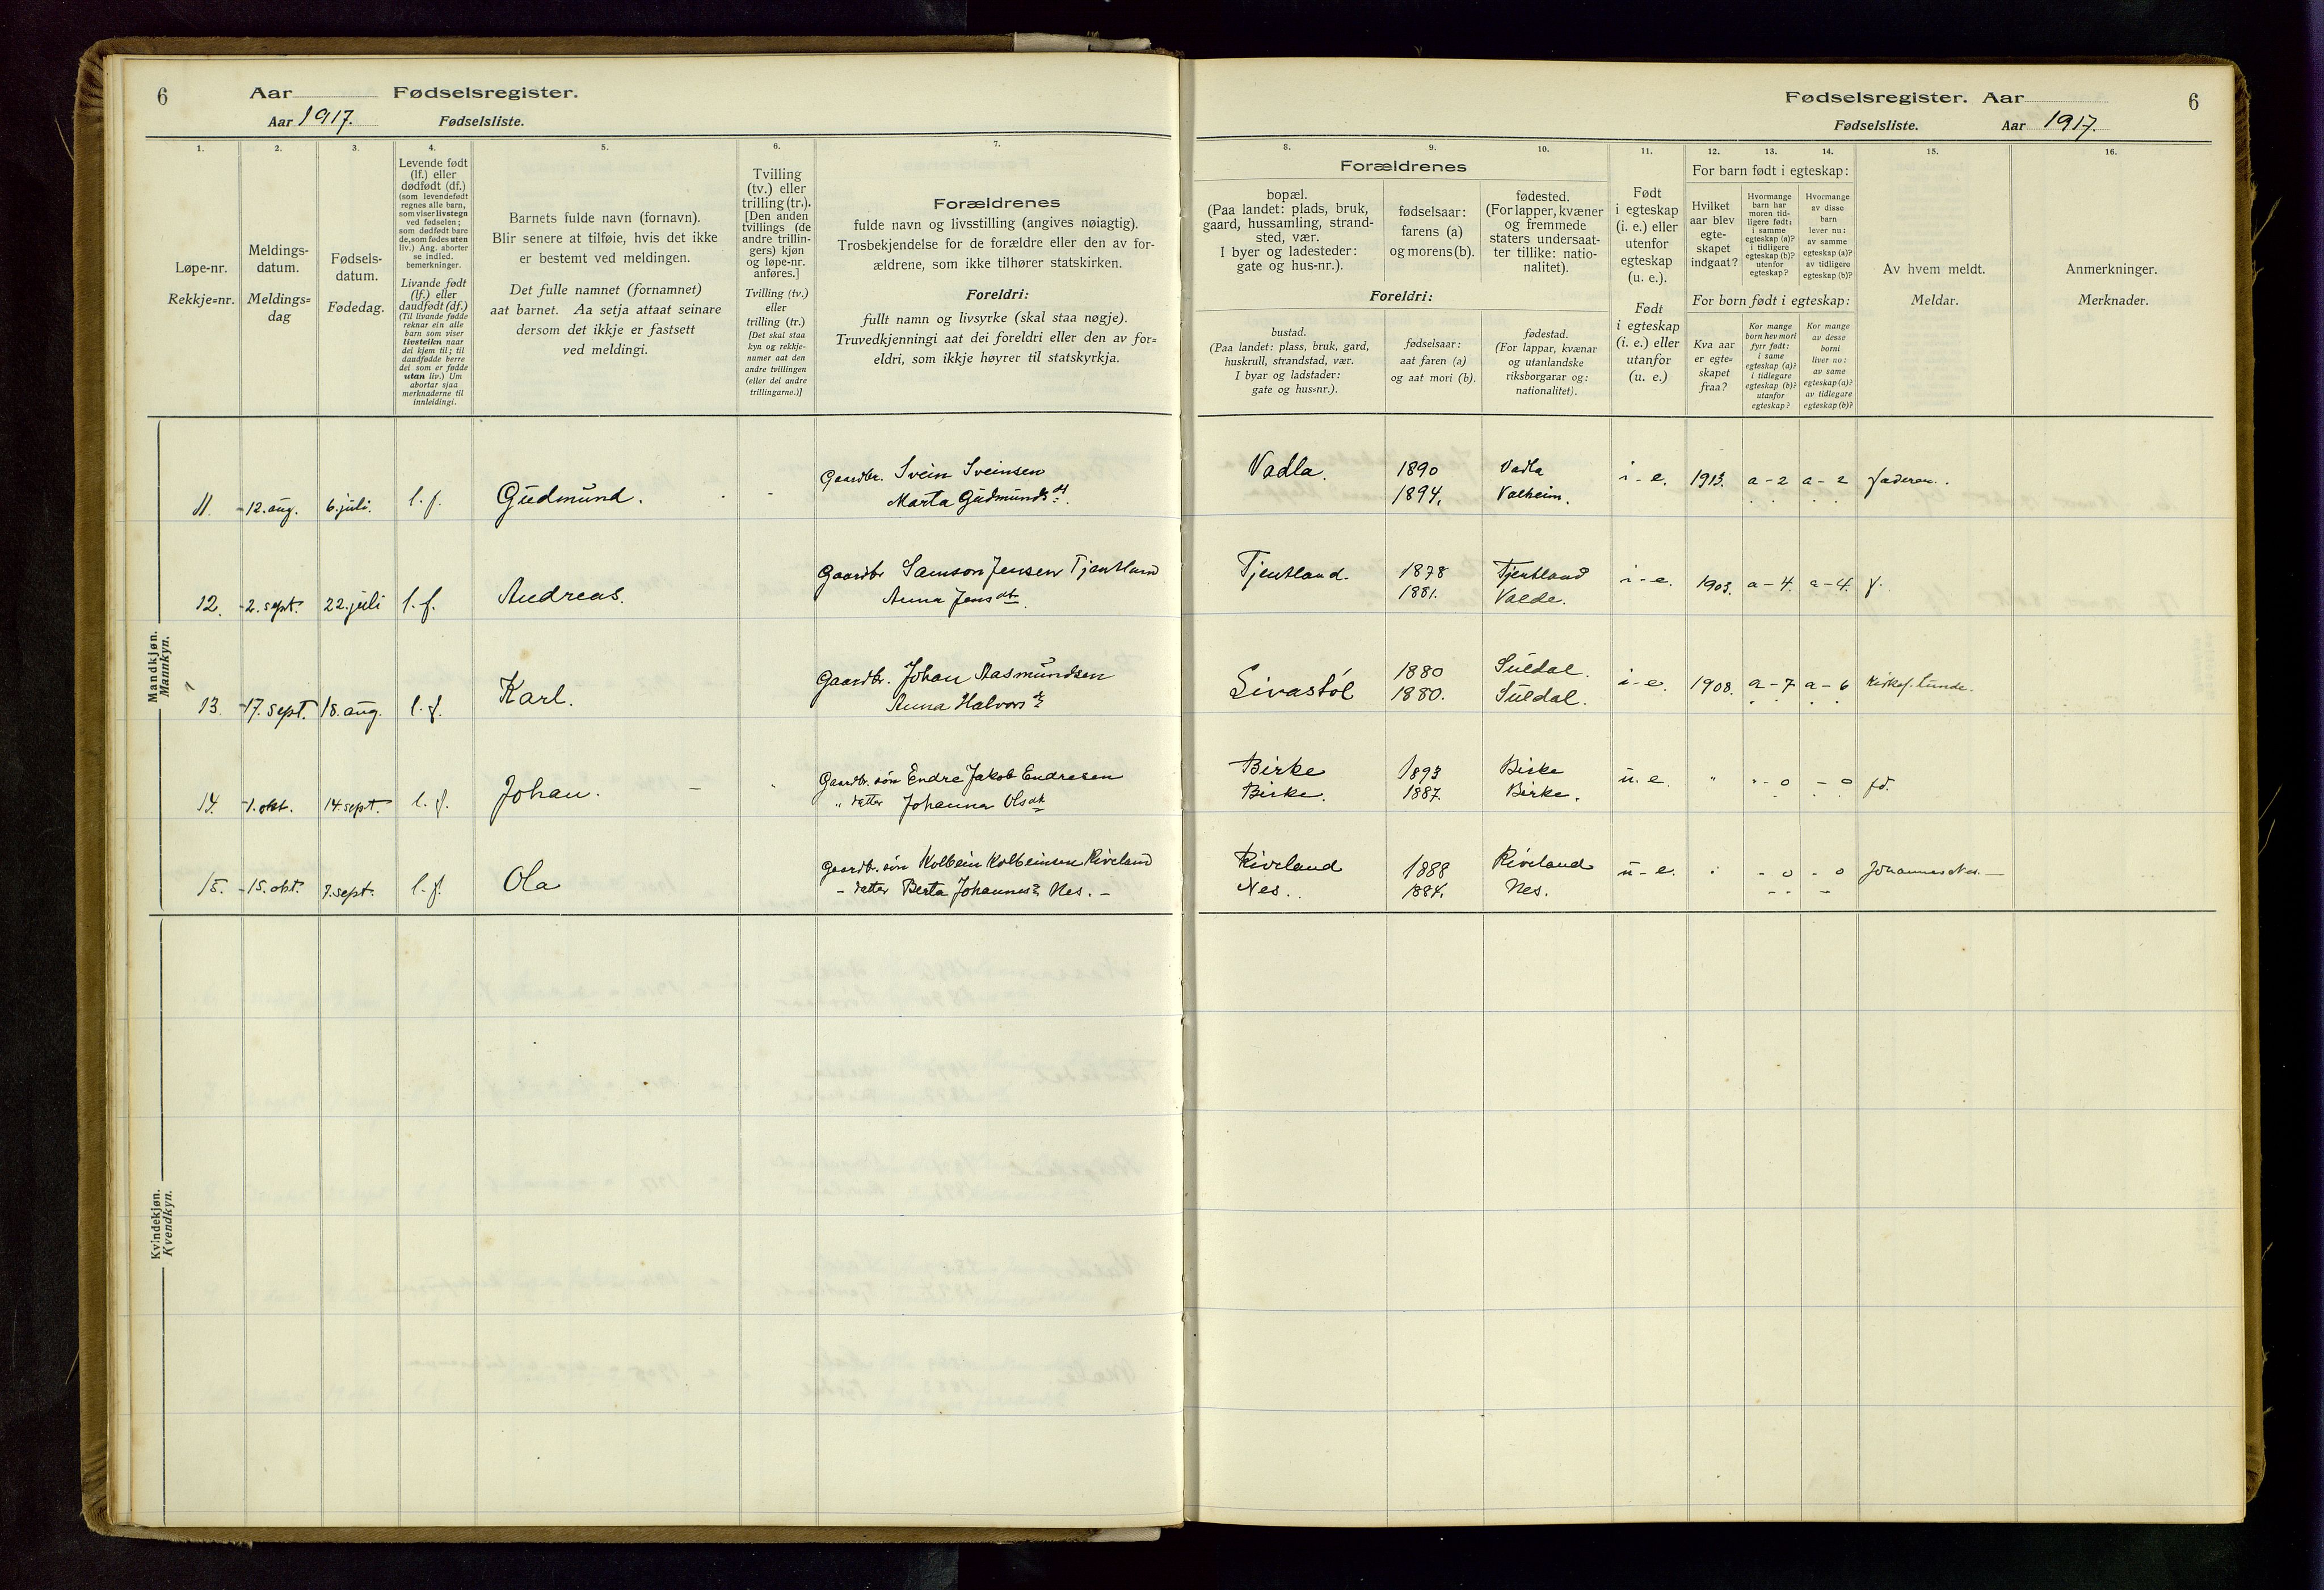 6 Aar Fødselsregister.
Aar 1917. Fødselsliste.
1. 2. 3. 4. 5. 6. 7.
Løpe-nr.
Rekkje=nr.
Meldings-
datum.
Meldings=
dag
Fødsels-
datum.
Fødedag.
Levende født
(lf.) eller
dødfødt (df.)
(som levendefødt
regnes alle barn,
som viser livstegn
ved fødselen;
som dødfødt bare
de, som fødes uten
liv.) Ang. aborter
se indled.
bemerkninger.
Livande født
(lf.) eller
daudfødt (df.)
(Til livande fødde
reknar ein alle
barn som viser
livsteikn naar
dei kjem til; til
daudfødde berre
dei som er fødde
utan liv.) Um
abortar sjaa
merknaderne til
innleidingi.
Barnets fulde navn (fornavn).
Blir senere at tilføie, hvis det ikke
er bestemt ved meldingen.
Det fulle namnet (fornamnet)
aat barnet. Aa setja attaat seinare
dersom det ikkje er fastsett
ved meldingi.
Tvilling
(tv.) eller
trilling (tr.).
[Den anden
tvillings (de
andre trillin-
gers) kjøn
og løpe-nr.
anføres.]
Tvilling (tv.)
eller
trilling (tr.)
[Det skal staa
kyn og rekkje-
numer aat den
andre tvillingen
(eller dei andre
trillingarne.)]
Forældrenes
fulde navn og livsstilling (angives nøiagtig).
Trosbekjendelse for de forældre eller den av for-
ældrene, som ikke tilhører statskirken.
Foreldri:
fullt namn og livsyrke (skal staa nøgje).
Truvedkjenningi aat dei foreldri eller den av for=
eldri, som ikkje høyrer til statskyrkja.
Mandkjøn.
Mannkyn.
11. 12. aug. 6. juli. l. f. Gudmund. Gaardbr. Svein Sveinsen
Marta Gudmundsdt.
12. 2. sept. 22. juli l. f. Andreas. Gaardbr Samson Jensen Tjentland
Anna Jensdt.
13. 17. sept. 18. aug. l. f. Karl. Gaardbr. Johan Aasmundsen
Anna Halvorsdt.
14. 1. okt. 14. sept. l. f. Johan. Gaardbr. søn Endre Jakob Endresen
" datter Johanna Olsdt
15. 15. okt. 7. sept. l. f. Ola Gaardbr. søn Kolbein Kolbeinsen Riveland
- datter Berta Johannesdt Nes. -
Kvindekjøn.
Kvendkyn.
Fødselsregister. Aar 6
Fødselsliste. Aar 1917.
8. 9. 10. 11. 12. 13. 14. 15. 16.
Forældrenes
bopæl.
(Paa landet: plads, bruk,
gaard, hussamling, strand-
sted, vær.
I byer og ladesteder:
gate og hus-nr.).
fødselsaar:
farens (a)
og morens (b).
fødested.
(For lapper, kvæner
og fremmede
staters undersaat-
ter tillike: natio-
nalitet).
Foreldri:
bustad.
(Paa landet: plass, bruk, gard,
huskrull, strandstad, vær.
I byar og ladstader:
gate og hus=nr.).
fødselsaar:
aat faren (a)
og aat mori (b).
fødestad.
(For lappar, kvænar
og utanlandske
riksborgarar og:
nationalitet).
Født
i egteskap
(i. e.) eller
utenfor
egteskap
(u. e.).
Født
i egteskap
(i. e.) eller
utanfor
(u. e.)
For barn født i egteskap:
Hvilket
aar blev
egte-
skapet
indgaat?
Hvormange
barn har
moren tid-
ligere født:
i samme
egteskap (a)?
i tidligere
egteskap (b)?
utenfor
egteskap?
Hvormange
av disse
barn
lever nu:
av samme
egteskap (a)?
av tidligere
egteskap (b)?
For born født i egteskap:
Kva aar
er egte=
skapet
fraa?
Kor mange
born hev mori
fyrr født:
i same
egteskap (a)?
i tidlegare
egteskap (b)?
utanfor
egteskap?
Kor mange
av desse
borni
liver no:
av same
egteskap (a)?
av tidlegare
egteskap (b)?
Av hvem meldt.
Meldar.
Anmerkninger.
Merknader.
Vadla. 1890 Vadla i - e. 1913. a - 2 a - 2 faderen.
1894. Valheim.
Tjentland. 1878 Tjentland i - e. 1903. a - 4. a - 4. f.
1881. Valde.
Livastøl 1880 Suldal. i - e. 1908. a - 7 a - 6 Kirkes. Lunde.
1880. Suldal.
Birke 1893 Birke u. e. " " - 0 - 0 fd.
Birke. 1887. Birke.
Riveland 1888 Riveland u - e. - 0 - 0 Johannes Nes. -
Nes. 1884. Nes.